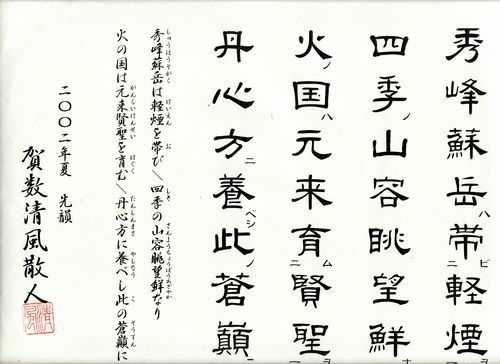 秀峰蘇岳ハ帯ビ二軽煙
四季ノ山容眺望鮮
火ノ国ハ元来育ム二賢聖
丹心方ニ養ベシ此ノ蒼巓
秀峰蘇岳は軽煙を帯び\四季の山容眺望鮮なり
火の国は元来賢聖を育む\丹心方に養べし此の蒼巓に
二〇〇二年夏 先韻
賀数清風散人